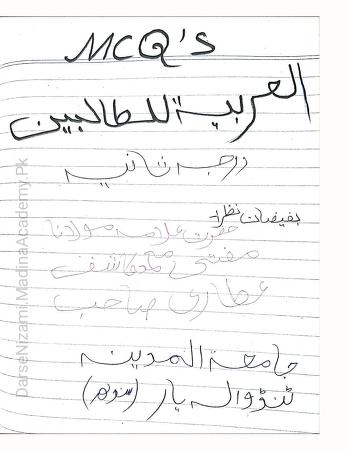 MCQ's
العربیۃ للطالبین
درجہ ثانیہ
بفیضان نظر
حضرت علامہ مولانا
مفتی محمد کاشف
عطاری صاحب
جامعۃ المدینہ
ٹنڈوالہ یار (سندھ)
DarseNizami.MadinaAcademy.Pk